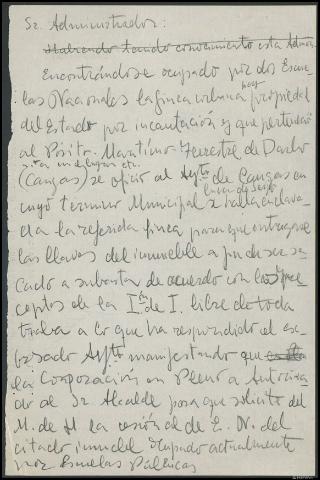 Sr. Administrador:
Habiendo tenido conocimiento esta Admón
Encontrándose ocupado por dos Escue-
las Nacionales la finca urbana hoy propiedad
del Estado por incautación y que perteneció
al Pósito Marítimo Terrestre de Darbo
(Cangas) se ofició al Aytº de Cangas en
cuyo termino Municipal se halla enclava-
da la referida finca para que entregase
las llaves del inmueble a fin de ser sa-
cado a subasta de acuerdo con los pre-
ceptos de la I. de I. libre de toda
traba a lo que ha respondido el ex-
presado Aytº manifestando que
la Corporación en Pleno a Autoriza-
do al Sr. Alcalde para que solicite del
M. de H la cesión al de E. N. del
citado inmueble Ocupado actualmente
por Escuelas Públicas